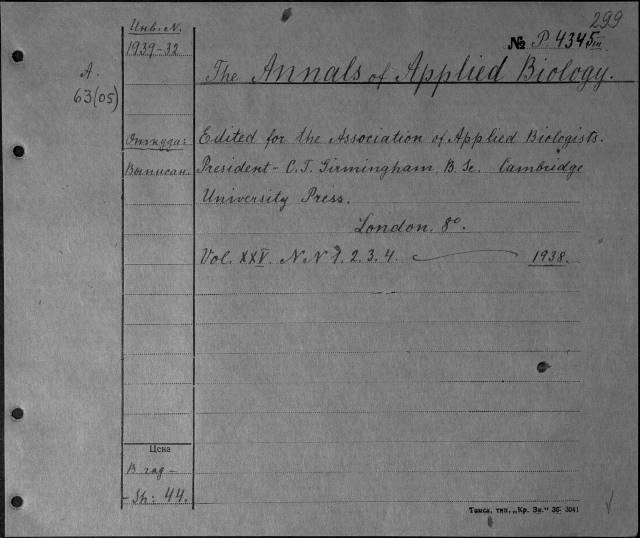 299
Инв. N.
1939-32
№ P. 4345III
A.
63(05)
The Annals of Applied Biology.
Откуда:
Выписан.
Edited for the Association of Applied Biologists.
President - C. T. Girmingham, B. Sc. Cambridge
University Press.
London. 8°.
Vol. XXV. NN 1. 2. 3. 4. 1938.
Цена
В год -
- Sh: 44.
Тамса. тип. „Кр. Зн." 36- 3041